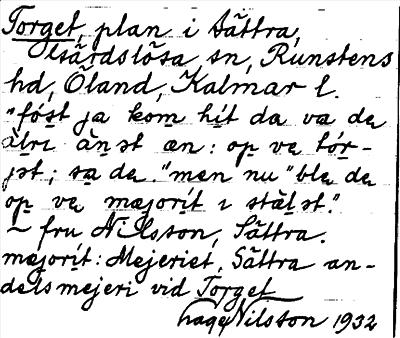 Torget, plan i Sättra,
Gärdslösa sn, Runstens
hd, Öland, Kalmar l.
"fo̱ṣt ja kom hi̱t da va de
a̱lri a̱nət æn: op ve to̱r-
jət; sa de. "men nu" ble de
op ve mæjori̱t i stä̱lət."
~ fru Nilsson, Sättra.
mæjori̱t: Mejeriet, Sättra an-
delsmejeri vid Torget
Nilsson 1932